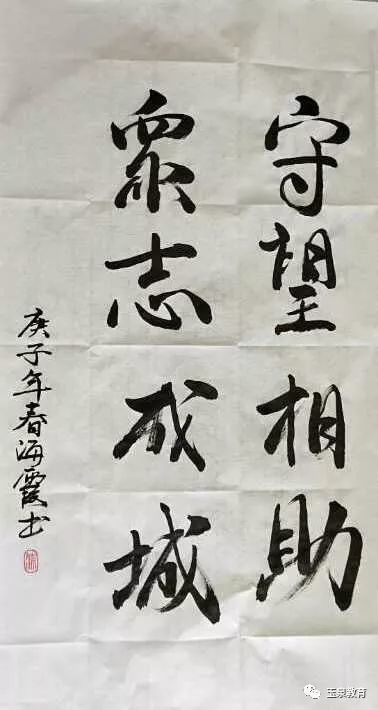 守望相助
眾志成城
庚子年春海霞书
玉泉教育